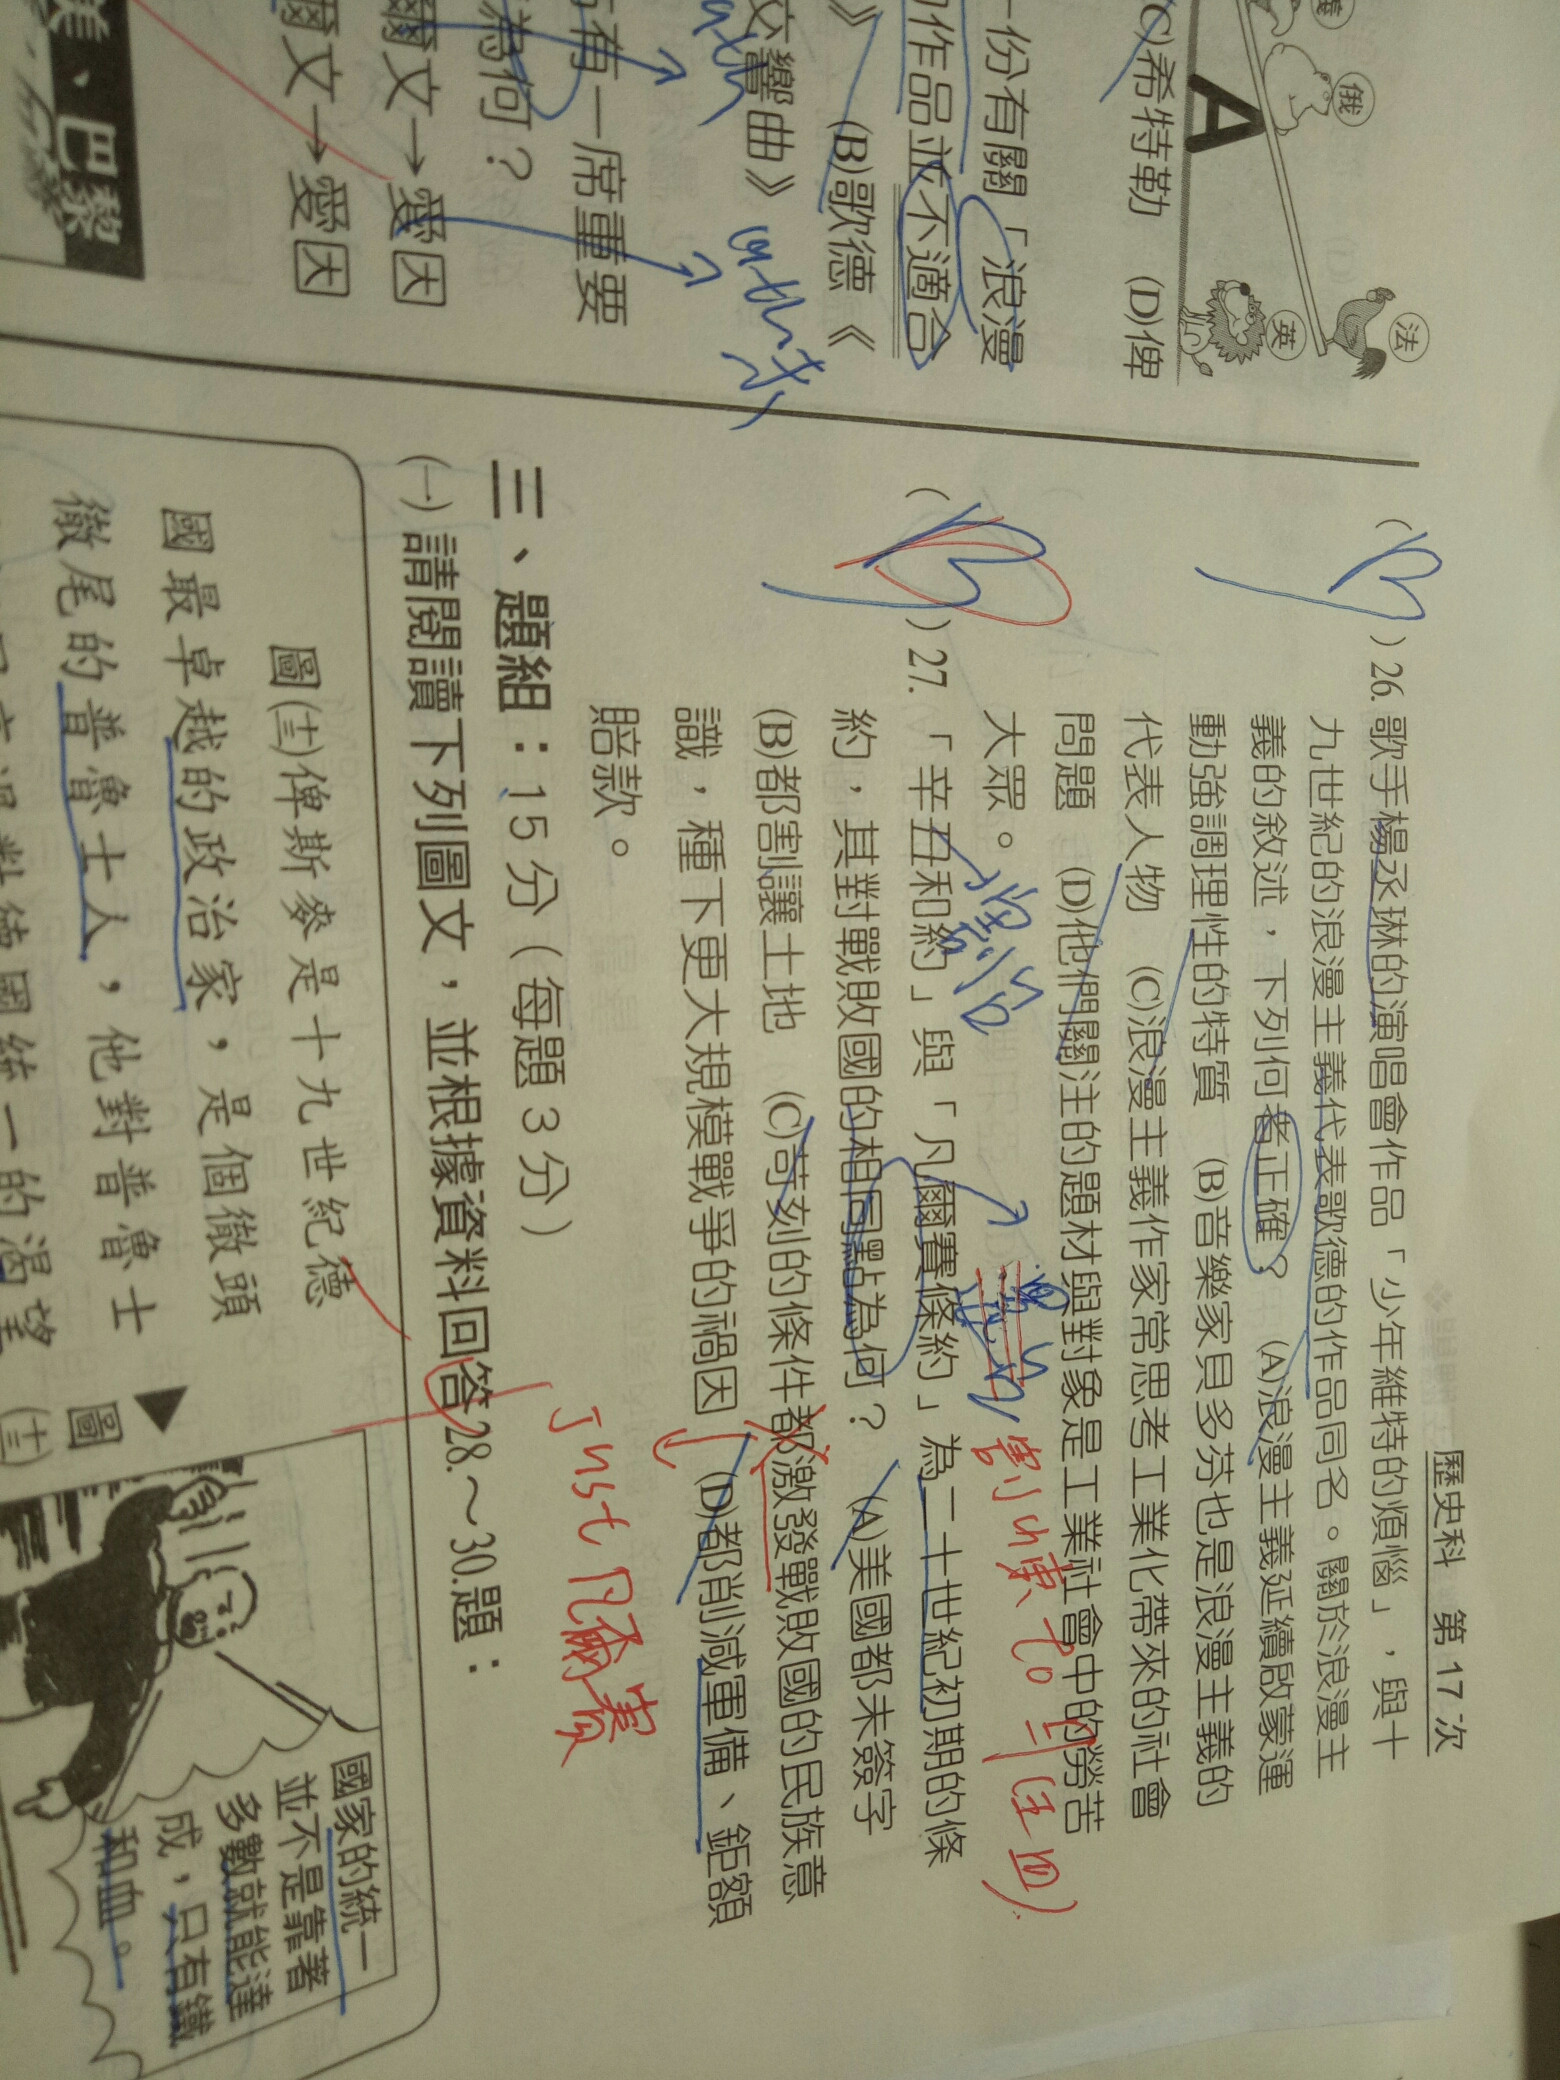 歷史科 第17次
( B ) 26. 歌手楊丞琳的演唱會作品「少年維特的煩惱」，與十
九世紀的浪漫主義代表歌德的作品同名。關於浪漫主
義的敘述，下列何者正確？ (A)浪漫主義延續啟蒙運
動強調理性的特質 (B)音樂家貝多芬也是浪漫主義的
代表人物 (C)浪漫主義作家常思考工業化帶來的社會
問題 (D)他們關注的題材與對象是工業社會中的勞苦
大眾。
割山東 to 日
( B ) 27. 「辛丑和約」與「凡爾賽條約」為二十世紀初期的條
約，其對戰敗國的相同點為何？ (A)美國都未簽字
(B)都割讓土地 (C)苛刻的條件都激發戰敗國的民族意
識，種下更大規模戰爭的禍因 (D)都削減軍備、鉅額
賠款。
Just 凡爾賽
三、題組：15分（每題3分）
(一) 請閱讀下列圖文，並根據資料回答28.～30.題：
圖(十三)俾斯麥是十九世紀德
國最卓越的政治家，是個徹頭
徹尾的普魯士人，他對普魯士
統一的渴望
圖(十三)
國家的統一
並不是靠著
多數就能達
成，只有鐵
和血。
俄
法
英
A
(C)希特勒 (D)俾
一份有關「浪漫
作品並不適合
》 (B)歌德《
交響曲》
有一席重要
為何？
爾文→愛因
爾文→愛因
美、巴黎